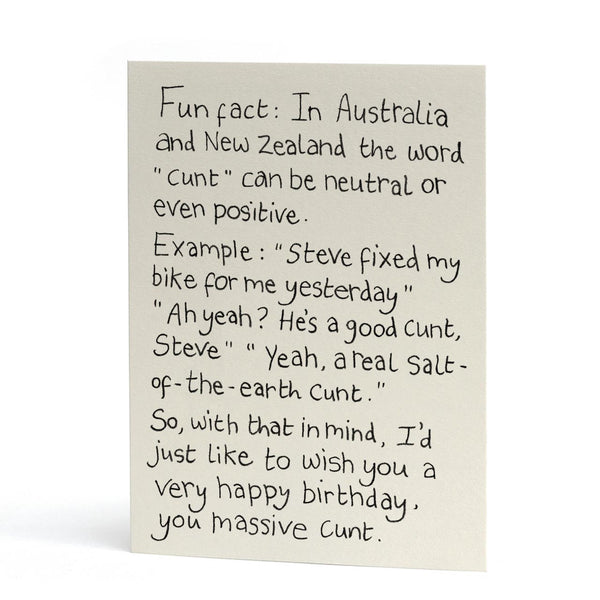 Fun fact: In Australia
and New Zealand the word
"cunt" can be neutral or
even positive.
Example: "Steve fixed my
bike for me yesterday"
"Ah yeah? He's a good cunt,
Steve" "Yeah, a real salt-
of-the-earth cunt."
So, with that in mind, I'd
just like to wish you a
very happy birthday,
you massive cunt.